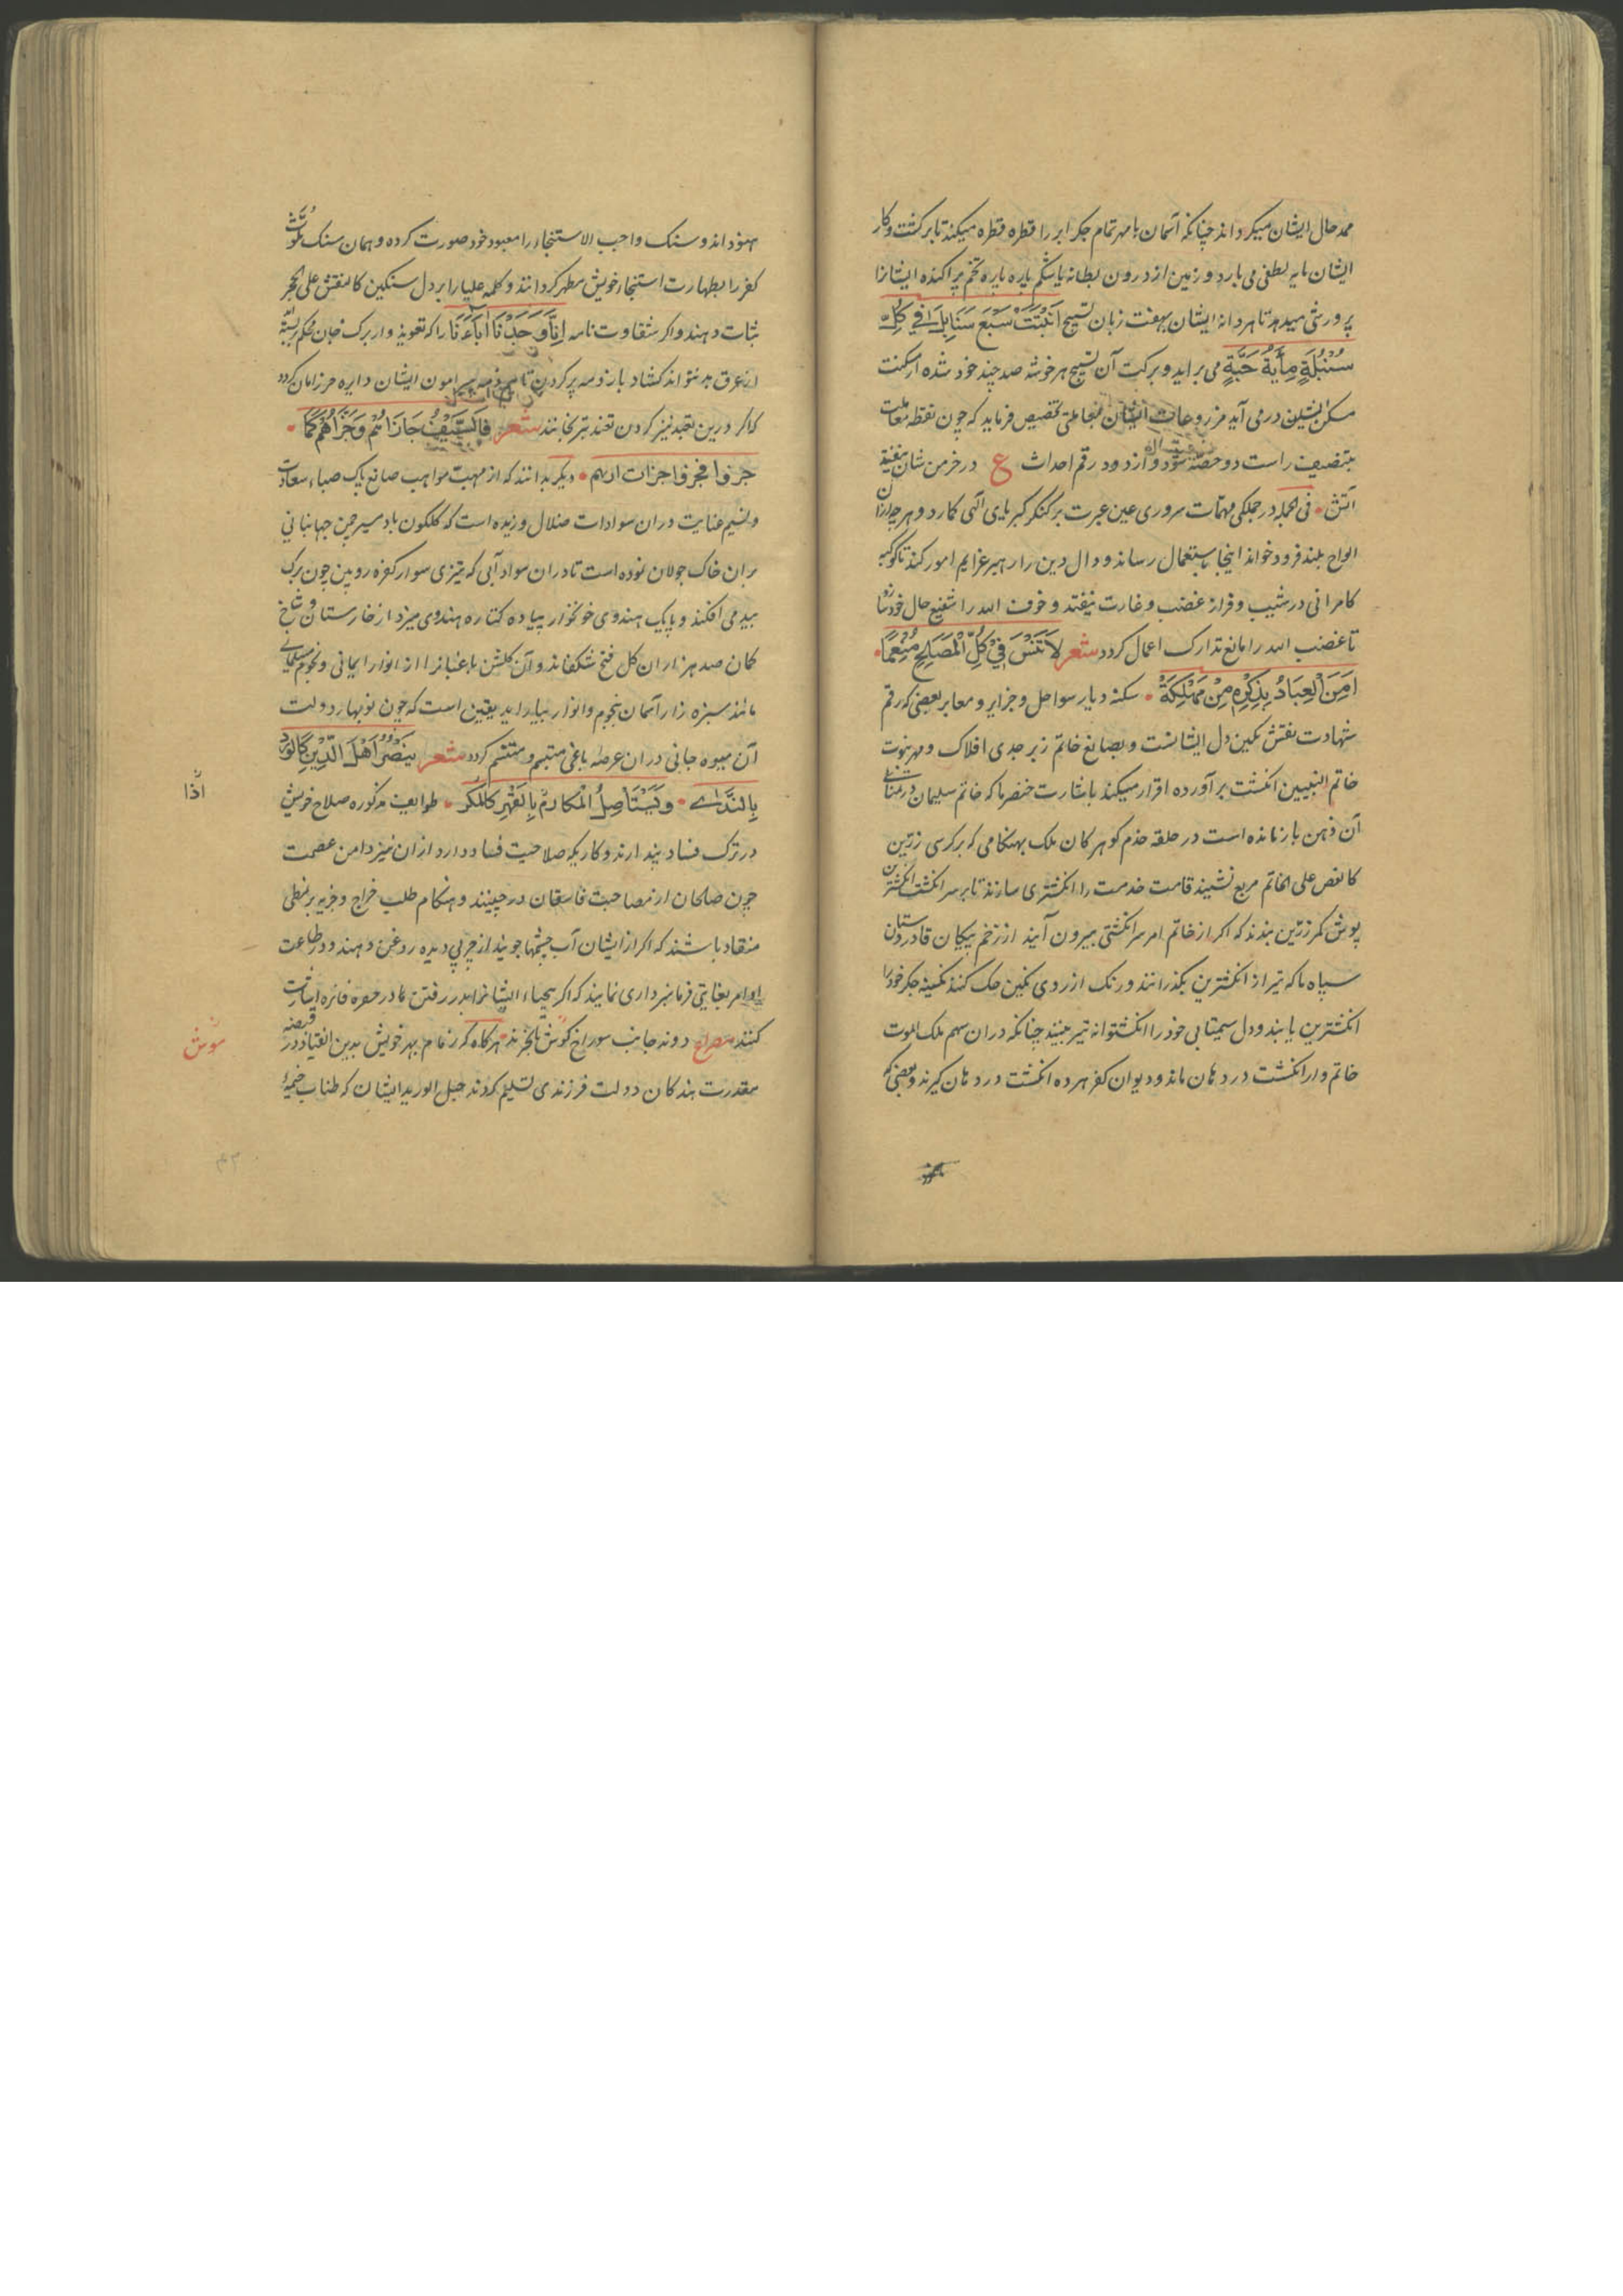 ممد حال ایشان میکرداند چنانکه آسمان با مهر تمام جکر ابر را قطره قطره میکند تا بر کشت و کار
ایشان مایه لطفی می بارد و زمین از درون بطانه با شکم پاره پاره تخم پراکنده ایشانرا
پرورشی میدهد تا هر دانه ایشان بهفت زبان تسبیح اَنْبَتَتْ سَبْعَ سَنَابِلَ فِي كُلِّ
سُنْبُلَةٍ مِأَيَةُ حَبَّةٍ می براید و برکت آن تسبیح هر خوشه صد چند خود شده از مکنت
مسکن نشین درمی آید مزروعات ایشان بمعاملتی تخصیص فرماید که چون نقطه معاملت
بتضیف راست دو حصه شود و از دود رقم احداث ع در خرمن شان نیفتد
آتش • فی الجمله در جملکی مهمات سروری عین عبرت بر کنکر کبریای الهی کمارد و هر چه از آن
الواح بلند فرود خواند اینجا باستعمال رساند و دال دین را رهبر عزایم امور کند تا کوکبه
کامرانی در شیب و فراز غضب و غارت نیفتد و خوف الله را شفیع حال خود سازد
تا غضب الله را مانع تدارک اعمال کردد شعر لَا تَنْسَ فِي كُلِّ الْمَصَالِحِ مُنْعِمًا •
اَمِنَ الْعِبَادُ بِذِكْرِهِ مِنْ مَهْلَكَةْ • سکنه دیار سواحل و جزایر و معابر بعضی که رقم
شهادت نقش نکین دل ایشانست و بصانع خاتم زبرجدی افلاک و مهر نبوت
خاتم النبیین انکشت برآورده اقرار میکند باشارت خنصر ما که خاتم سلیمان در تمنای
آن ذهن باز مانده است در حلقه خدم کوهر کان ملک بهنکامی که بر کرسی زرین
کالفص علی الخاتم مربع نشیند قامت خدمت را انکشتری سازند تا بر سر انکشت انکشترین
پوش کمر زرین بندند که اکر از خاتم امر سر انکشتی بیرون آیند از زخم پیکان قادر دستان
سپاه ما که تیر از انکشترین بکذرانند و رنک از روی نکین حک کنند نکینه جکر خود را
انکشترین یابند و دل سیمتابی خود را انکشتوانه تیر بینند چنانکه در ان سهم ملک الموت
خاتم وار انکشت در دهان ماند و دیوان کفر هر ده انکشت در دهان کیرند و بعضی که
هنود اند و سنک واجب الاستنجار را معبود خود صورت کرده و همان سنک ملوث
کفر را بطهارت استنجار خویش مطهر کردانند و کلمه علیا را بر دل سنکین کالنقش علی الحجر
ثبات دهند و اکر شقاوت نامه اِنَّا وَجَدْنَا اٰبَآءَنَا را که تعویذ وار برک جان محکم بسته اند
از عرق پد نتواند کشاد پیرامون ایشان دایره حرز امان کردد
که اکر درین تعبد نیز کردن تفند تبر نجانند شعر فَالسَّيْفُ جَازَاهُمْ وَجَزَّاهُمْ كَمَا •
جرفوا فجرفوا جزات ادیهم • دیکر بدانند که از مهبت مواهب صانع پاک صباء سعادت
و نسیم عنایت در ان سوادات ضلال وزیده است که کلکون باد سیر چمن جهانبانی
بران خاک جولان نموده است تا در ان سواد آبی که تیزی سوار کفره رویین چون برک
بید می افکند و پاپک هندوی خونخوار پیاده کتاره هندوی میزد از خارستان و شاخ
کمان صد هزاران کل فتح شکفاند و آن کلشن باغبانرا از انوار ایمانی و نجوم مسلمانی
مانند سبزه زار آسمان بنجوم و انوار بیاراید یقین است که چون نوبهار دولت
آن میوه جانی در ان عرصه باغی متبسم و متنسم کردد شعر يَنْصُرُ اَهْلَ الدِّيْنِ كَالْوَرْدِ
بِالنَّدَاے • وَيَسْتَأْصِلُ الْمَكَارِمَ بِالْقَهْرِ كَالْمَكَرِ • طوایف مذکوره صلاح خویش
در ترک فساد پندارند و کاریکه صلاحیت فساد دارد از ان نیز دامن عصمت
چون صالحان از مصاحبت فاسقان درچینند و هنکام طلب خراج و جزیه بر نمطی
منقاد باشند که اکر از ایشان آب چشمها جویند از چربی دیده روغن دهند و در طاعت
اوامر بغایتی فرمانبرداری نمایند که اکر بحیاء ایشانرا بدر رفتن ما در حفره فائزه اشارت
کنند مصراع دونه جانب سوراخ کوش ناخرند • هر کاه کز زمام بهر خویش بدین انقیاد در قبضه
مقدرت بندکان دولت فرزندی تسلیم کردند حبل الورید ایشان که طناب خیمه
اذا
موش